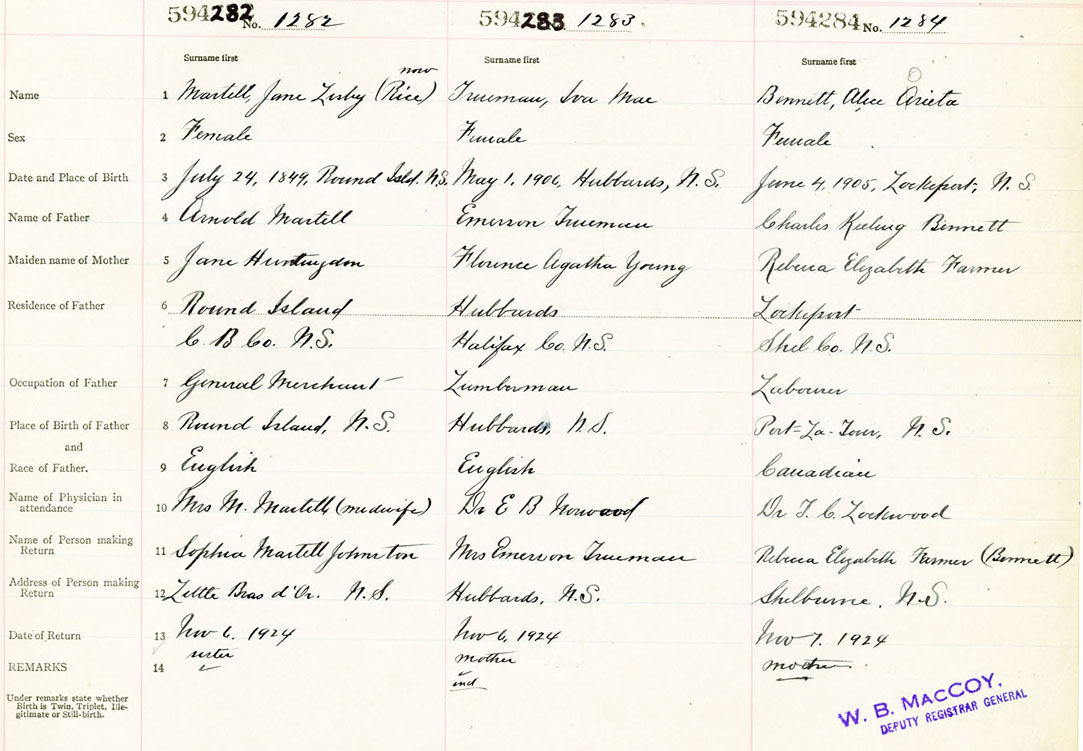 594282 No. 1282 594283 1283. 594284 No. 1284
Surname first Surname first Surname first
now
Name 1 Martell, Jane Zerby (Rice) Trueman, Iva Mae Bennett, Alice Arieta
Sex 2 Female Female Female
Date and Place of Birth 3 July 24, 1849, Round Isld. N.S. May 1, 1906, Hubbards, N.S. June 4, 1905, Lockeport, N.S.
Name of Father 4 Arnold Martell Emerson Trueman Charles Keeling Bennett
Maiden name of Mother 5 Jane Huntingdon Florence Agatha Young Rebecca Elizabeth Farmer
Residence of Father 6 Round Island Hubbards Lockeport
C. B Co. N.S. Halifax Co. N.S. Shel Co. N.S.
Occupation of Father 7 General Merchant Lumberman Labourer
Place of Birth of Father 8 Round Island, N.S. Hubbards, N.S. Port-La-Tour, N.S.
and
Race of Father. 9 English English Canadian
Name of Physician in
attendance 10 Mrs M. Martell (midwife) Dr E B Norwood Dr T. C. Lockwood
Name of Person making
Return 11 Sophia Martell Johnston Mrs Emerson Trueman Rebecca Elizabeth Farmer (Bennett)
Address of Person making
Return 12 Little Bras d'Or. N.S. Hubbards, N.S. Shelburne, N.S.
Date of Return 13 Nov 6. 1924 Nov 6, 1924 Nov 7. 1924
REMARKS 14 sister mother mother
Under remarks state whether
Birth is Twin, Triplet, Ille-
gitimate or Still-birth.
W. B. MACCOY,
DEPUTY REGISTRAR GENERAL